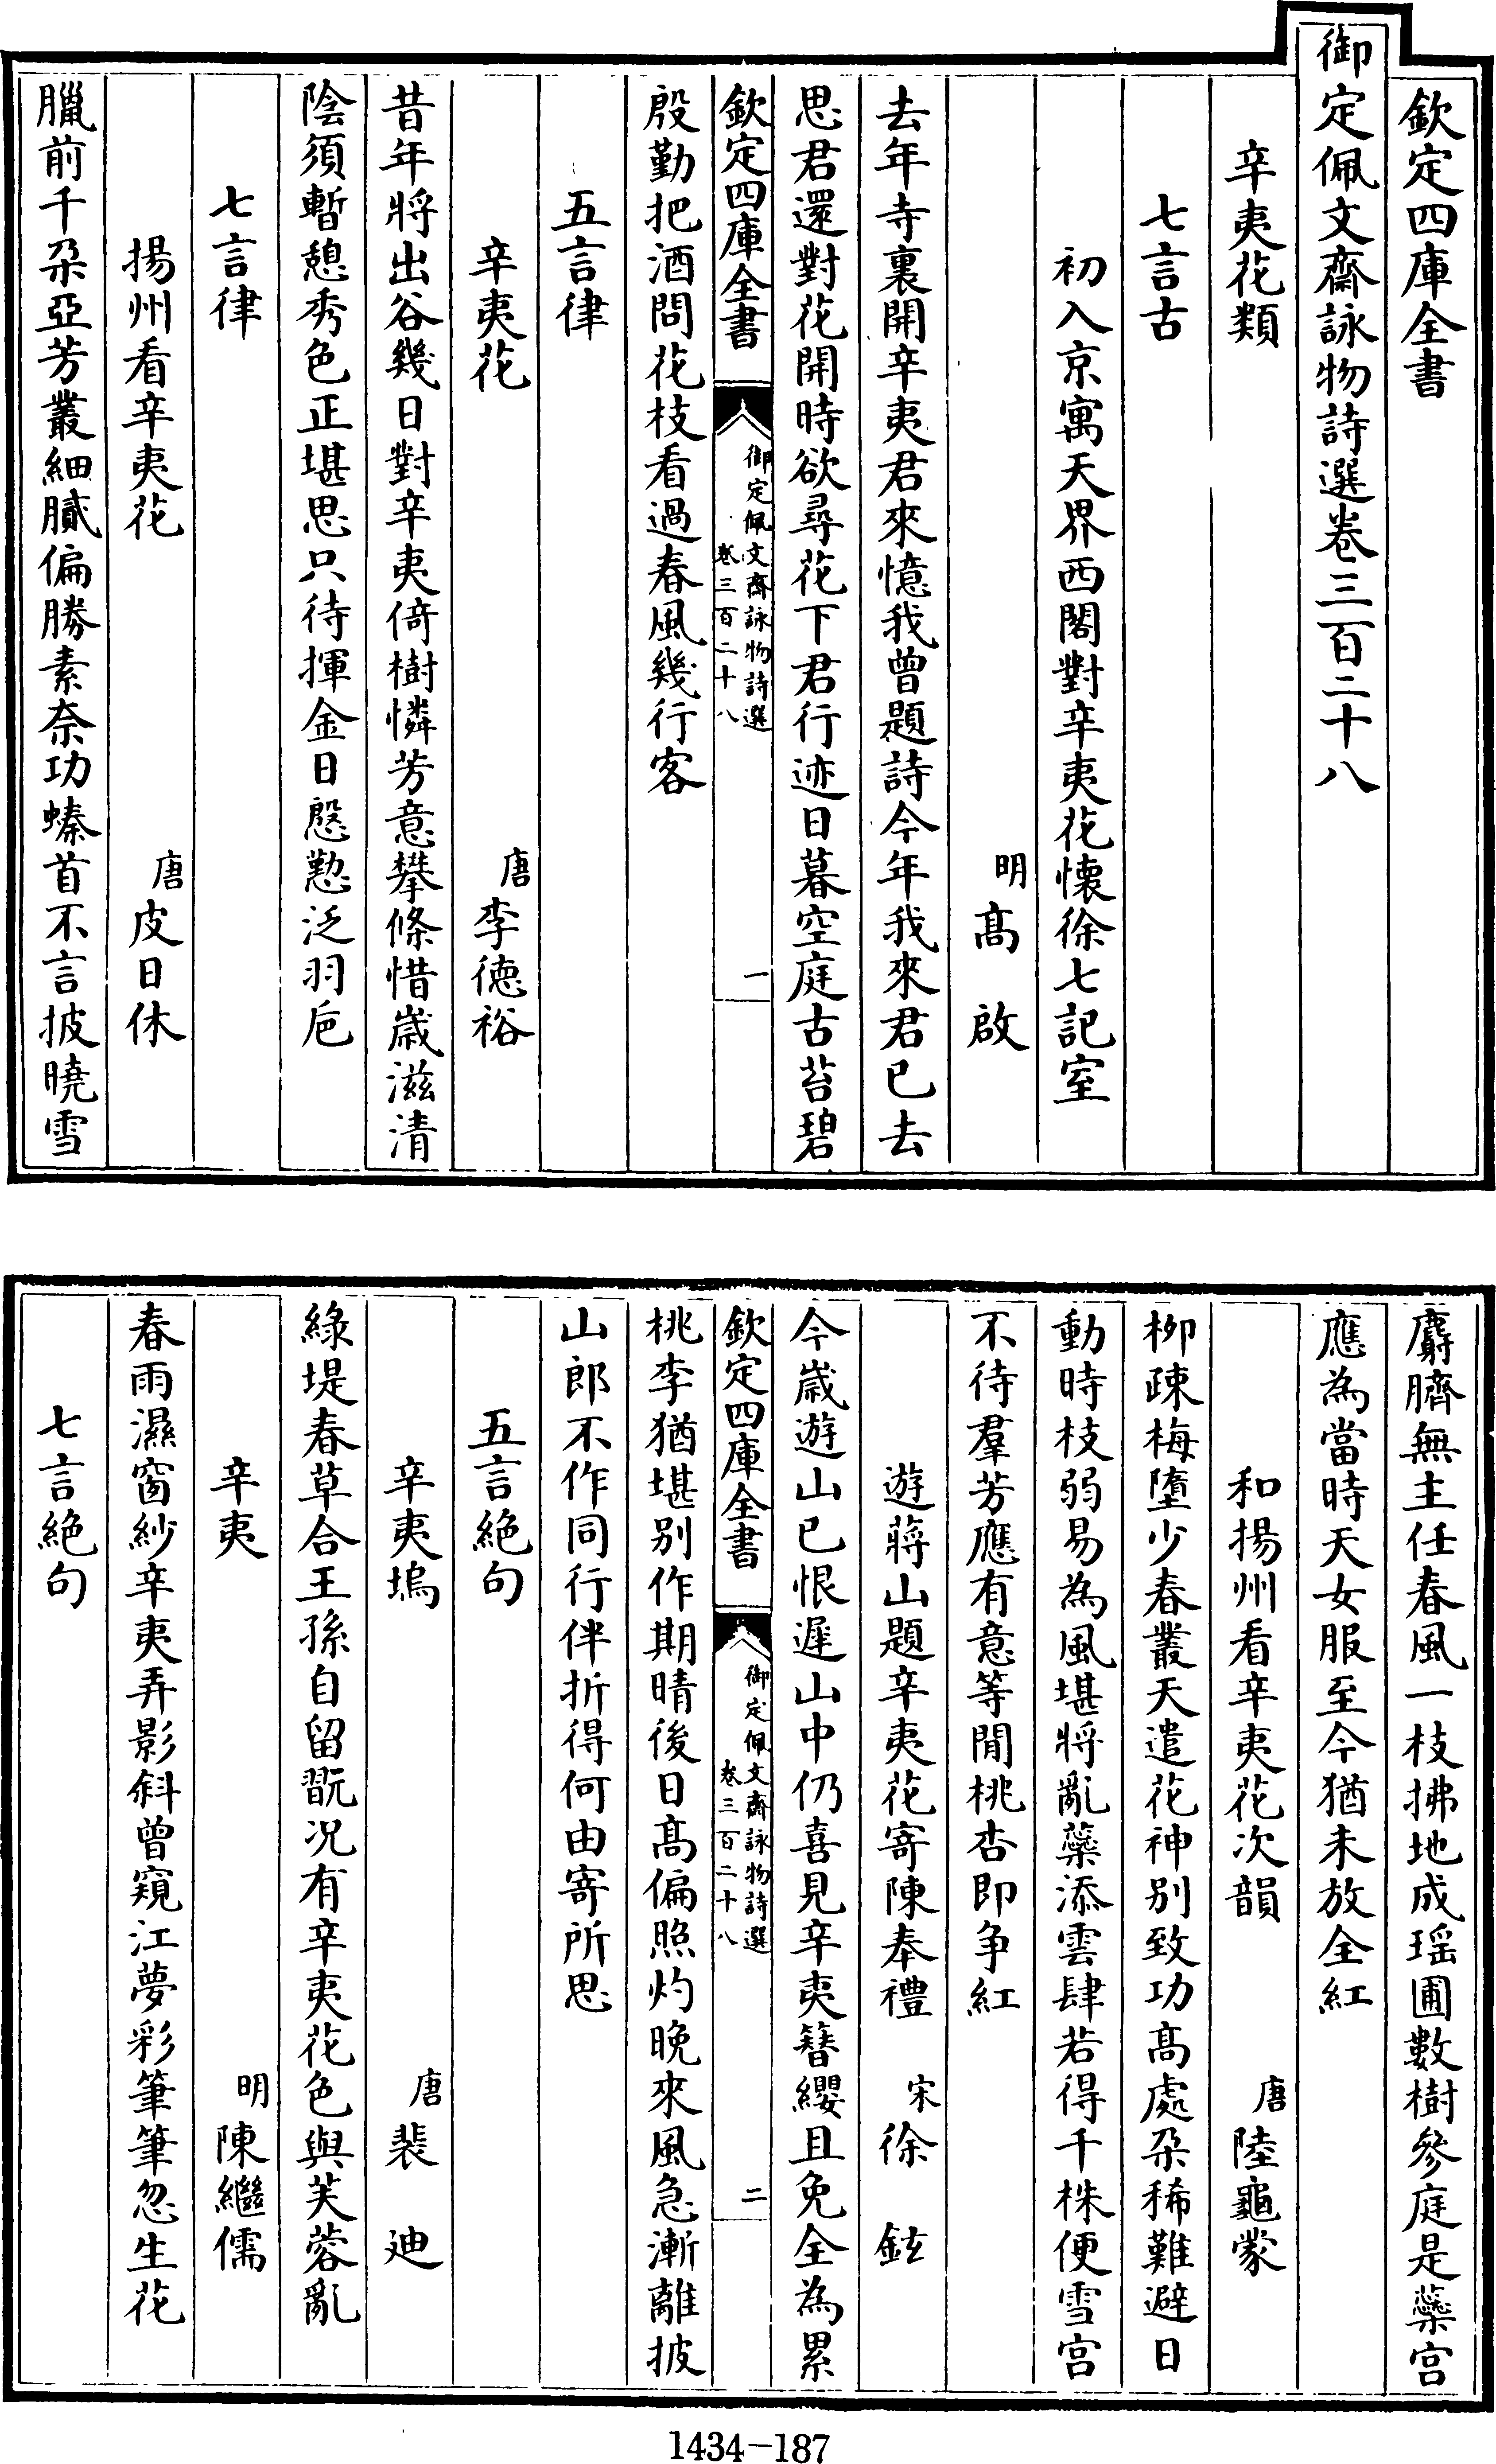 欽定四庫全書
御定佩文齋詠物詩選卷三百二十八
辛夷花類
七言古
初入京寓天界西閣對辛夷花懷徐七記室
明高啟
去年寺裏開辛夷君來憶我曾題詩今年我來君已去
思君還對花開時欲尋花下君行迹日暮空庭古苔碧
欽定四庫全書
御定佩文齋詠物詩選
卷三百二十八
一
殷勤把酒問花枝看過春風幾行客
五言律
辛夷花
唐李德裕
昔年將出谷幾日對辛夷倚樹憐芳意攀條惜歲滋清
陰須暫憩秀色正堪思只待揮金日慇懃泛羽巵
七言律
揚州看辛夷花
唐皮日休
臘前千朶亞芳叢細膩偏勝素奈功螓首不言披曉雪
麝臍無主任春風一枝拂地成瑶圃數樹參庭是蘂宫
應為當時天女服至今猶未放全紅
和揚州看辛夷花次韻
唐陸龜蒙
柳疎梅墮少春叢天遣花神别致功髙處朶稀難避日
動時枝弱易為風堪將亂蘂添雲肆若得千株便雪宫
不待羣芳應有意等閒桃杏即争紅
遊蔣山題辛夷花寄陳奉禮
宋徐鉉
今歲遊山已恨遲山中仍喜見辛夷簪纓且免全為累
欽定四庫全書
御定佩文齋詠物詩選
卷三百二十八
二
桃李猶堪别作期晴後日髙偏照灼晚來風急漸離披
山郎不作同行伴折得何由寄所思
五言絶句
辛夷塢
唐裴迪
綠堤春草合王孫自留翫况有辛夷花色與芙蓉亂
辛夷
明陳繼儒
春雨濕窗紗辛夷弄影斜曾窺江夢彩筆筆忽生花
七言絶句
1434-187